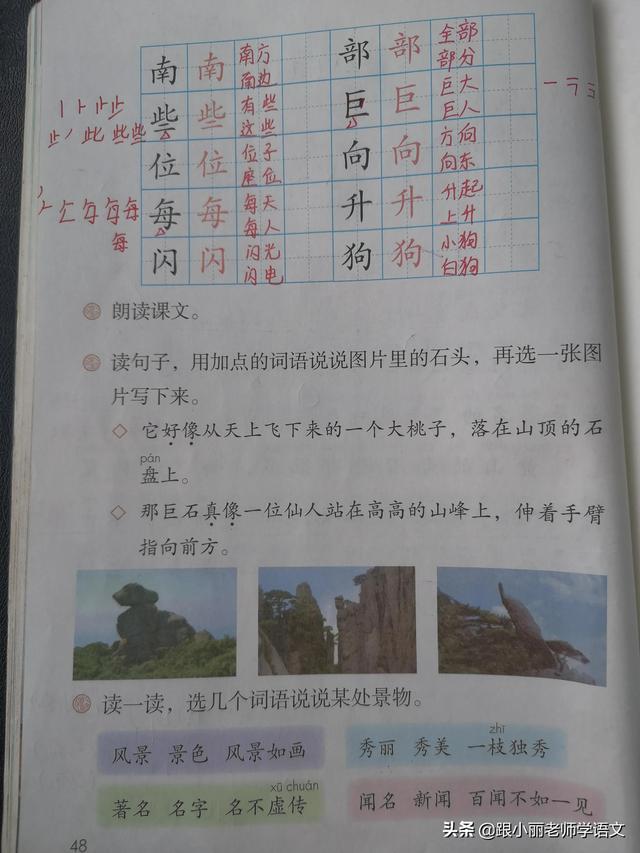 南 南 南方 南边 部 部 全部 部分
些 些 有些 这些 巨 巨 巨大 巨人
位 位 位子 座位 向 向 方向 向东
每 每 每天 每人 升 升 升起 上升
闪 闪 闪光 闪电 狗 狗 小狗 白狗
朗读课文。
读句子，用加点的词语说说图片里的石头，再选一张图
片写下来。
◇ 它好像从天上飞下来的一个大桃子，落在山顶的石
pán
盘上。
◇ 那巨石真像一位仙人站在高高的山峰上，伸着手臂
指向前方。
读一读，选几个词语说说某处景物。
风景 景色 风景如画
zhī
秀丽 秀美 一枝独秀
xū chuán
著名 名字 名不虚传
闻名 新闻 百闻不如一见
48
头条 @跟小丽老师学语文